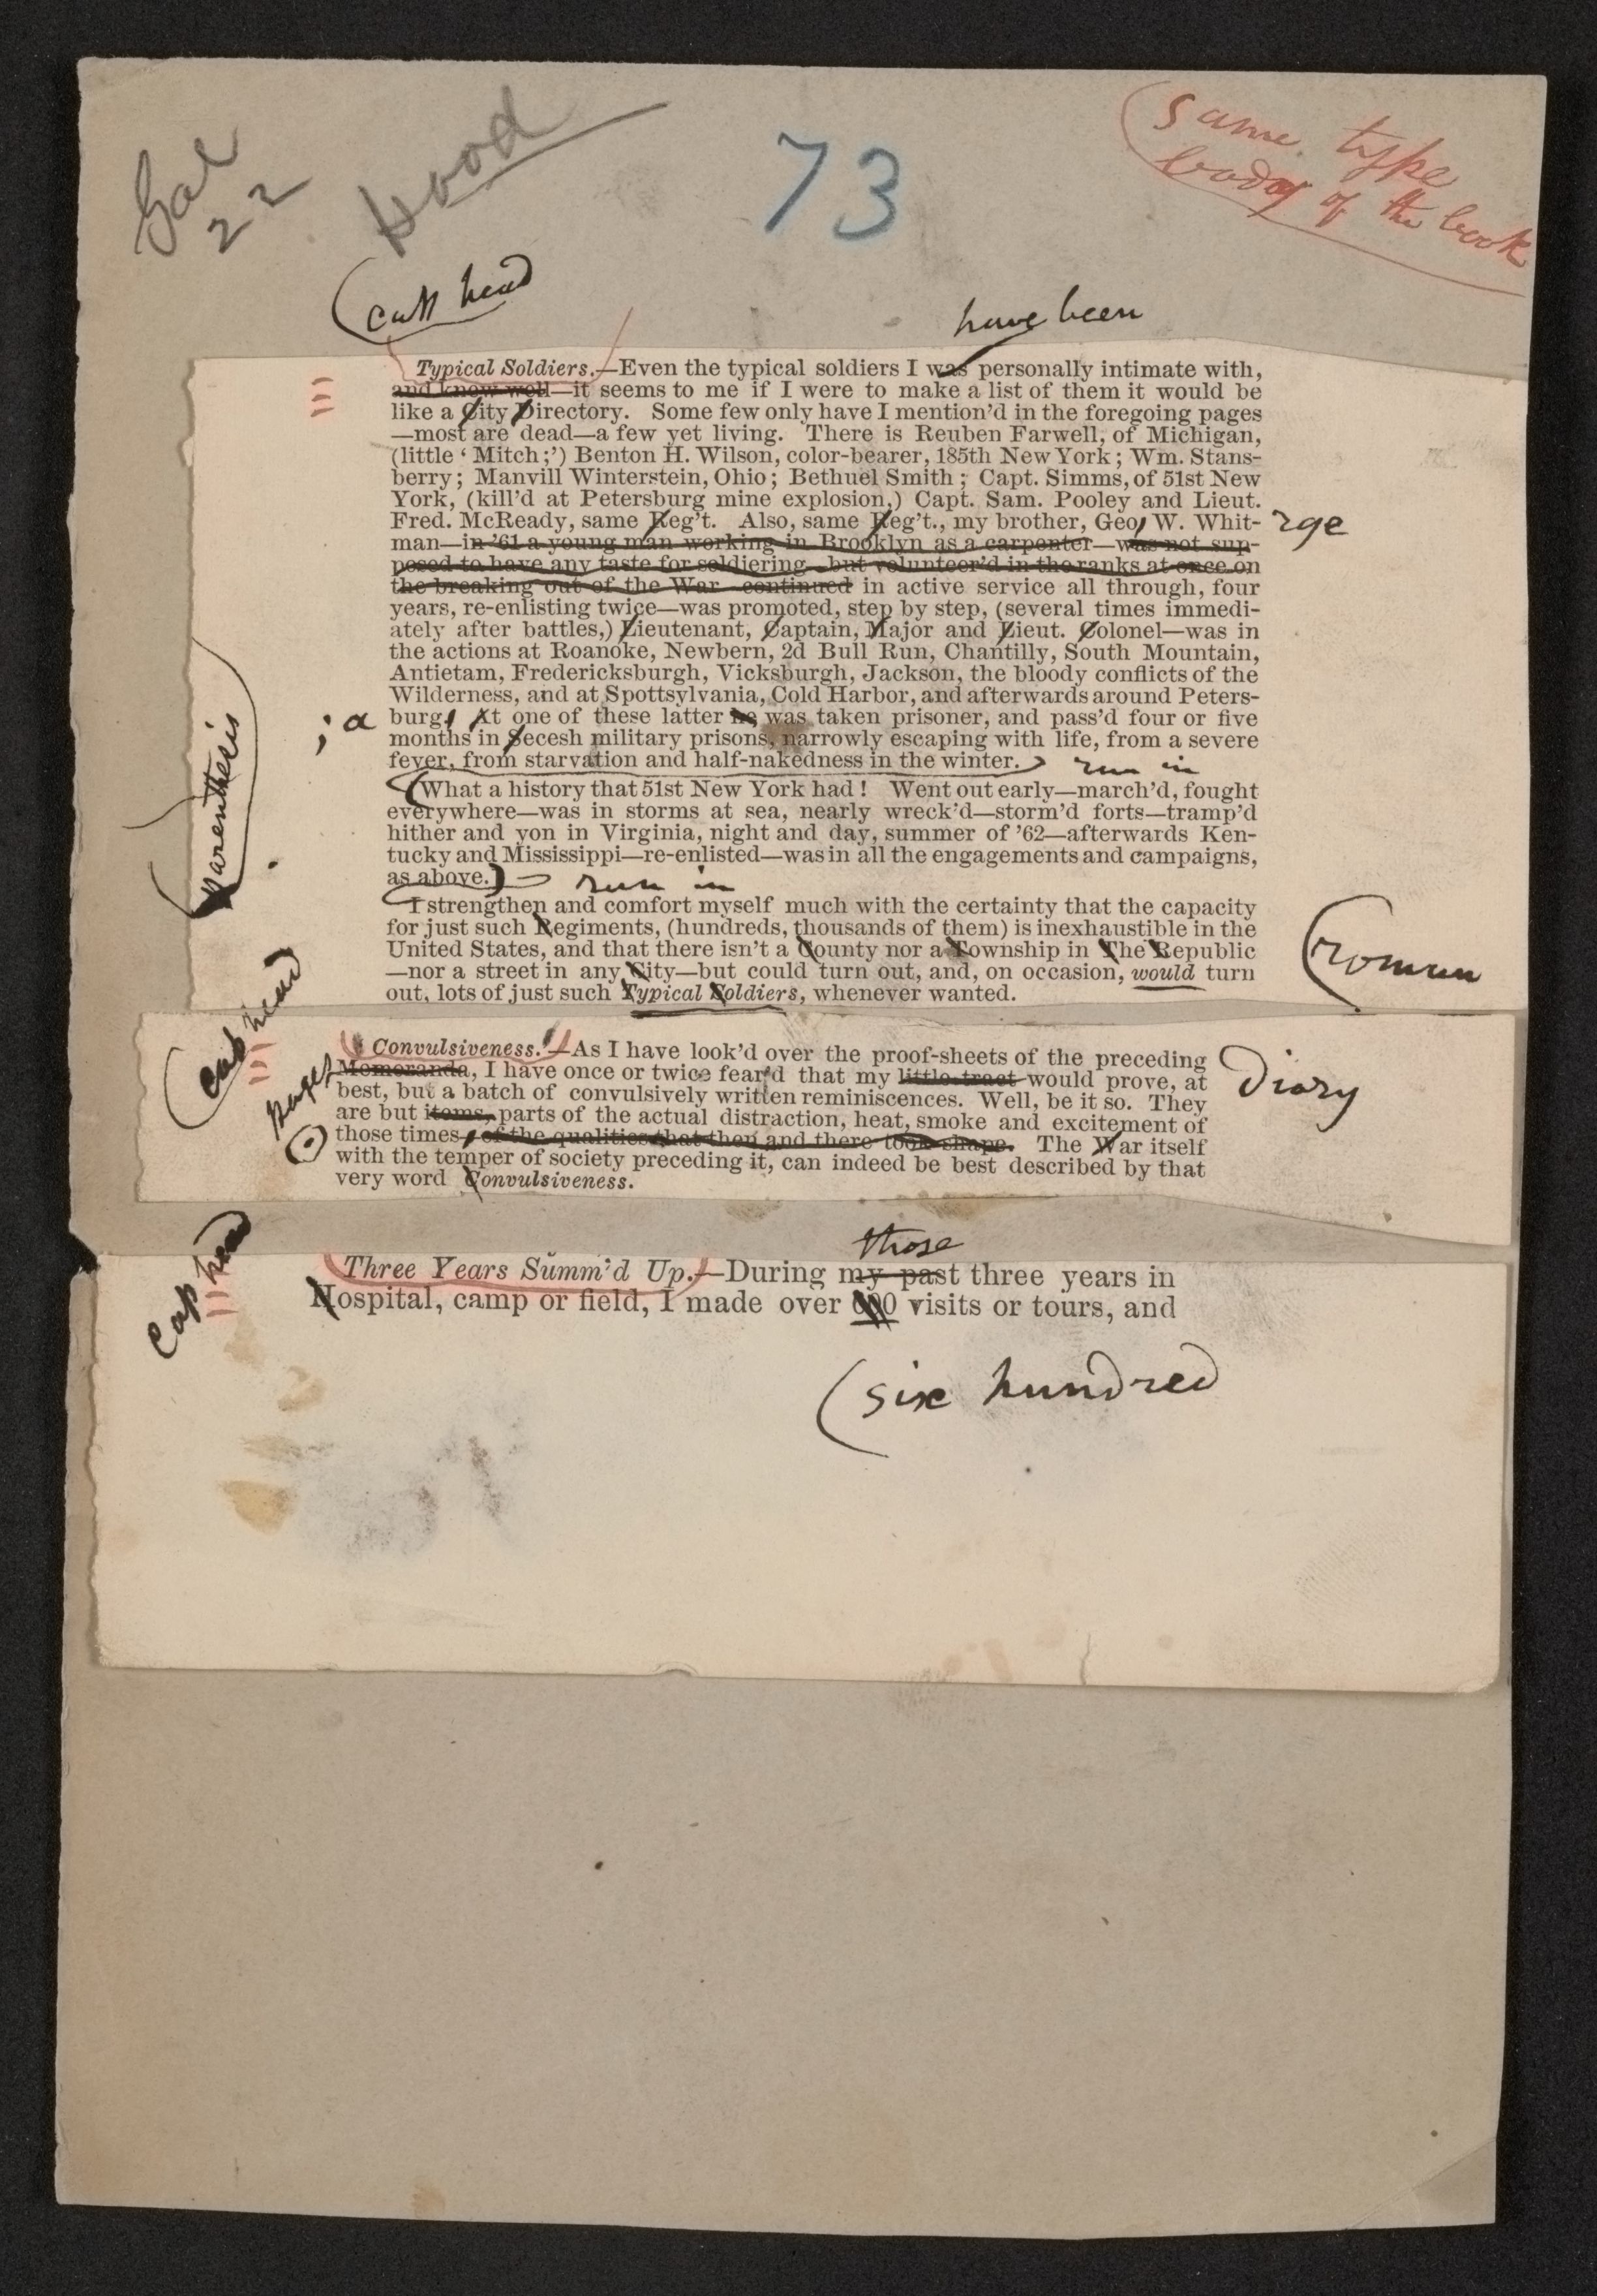 Gal
22
Hood
73
(same type
body of the book
(cap head
have been
Typical Soldiers.—Even the typical soldiers I was personally intimate with,
and know well—it seems to me if I were to make a list of them it would be
like a City Directory. Some few only have I mention'd in the foregoing pages
—most are dead—a few yet living. There is Reuben Farwell, of Michigan,
(little ‘ Mitch ;’) Benton H. Wilson, color-bearer, 185th New York; Wm. Stans-
berry; Manvill Winterstein, Ohio; Bethuel Smith; Capt. Simms, of 51st New
York, (kill'd at Petersburg mine explosion,) Capt. Sam. Pooley and Lieut.
Fred. McReady, same Reg't. Also, same Reg't., my brother, Geo. W. Whit- rge
man—in '61 a young man working in Brooklyn as a carpenter—was not sup-
posed to have any taste for soldiering—but volunteer'd in the ranks at once on
the breaking out of the War—continued in active service all through, four
years, re-enlisting twice—was promoted, step by step, (several times immedi-
ately after battles,) Lieutenant, Captain, Major and Lieut. Colonel—was in
the actions at Roanoke, Newbern, 2d Bull Run, Chantilly, South Mountain,
Antietam, Fredericksburgh, Vicksburgh, Jackson, the bloody conflicts of the
Wilderness, and at Spottsylvania, Cold Harbor, and afterwards around Peters-
; a burg. At one of these latter he was taken prisoner, and pass'd four or five
months in Secesh military prisons, narrowly escaping with life, from a severe
fever, from starvation and half-nakedness in the winter. run in
parenthesis
(What a history that 51st New York had! Went out early—march'd, fought
everywhere—was in storms at sea, nearly wreck'd—storm'd forts—tramp'd
hither and yon in Virginia, night and day, summer of '62—afterwards Ken-
tucky and Mississippi—re-enlisted—was in all the engagements and campaigns,
as above.) run in
I strengthen and comfort myself much with the certainty that the capacity
for just such Regiments, (hundreds, thousands of them) is inexhaustible in the
United States, and that there isn't a County nor a Township in The Republic
—nor a street in any City—but could turn out, and, on occasion, would turn (roman
out, lots of just such Typical Soldiers, whenever wanted.
(cap head
"Convulsiveness."—As I have look'd over the proof-sheets of the preceding
pages Memoranda, I have once or twice fear'd that my little tract would prove, at diary
best, but a batch of convulsively written reminiscences. Well, be it so. They
are but items, parts of the actual distraction, heat, smoke and excitement of
those times, of the qualities that then and there took shape. The War itself
with the temper of society preceding it, can indeed be best described by that
very word Convulsiveness.
cap head
those
Three Years Summ'd Up.—During my past three years in
Hospital, camp or field, I made over 600 visits or tours, and
(six hundred